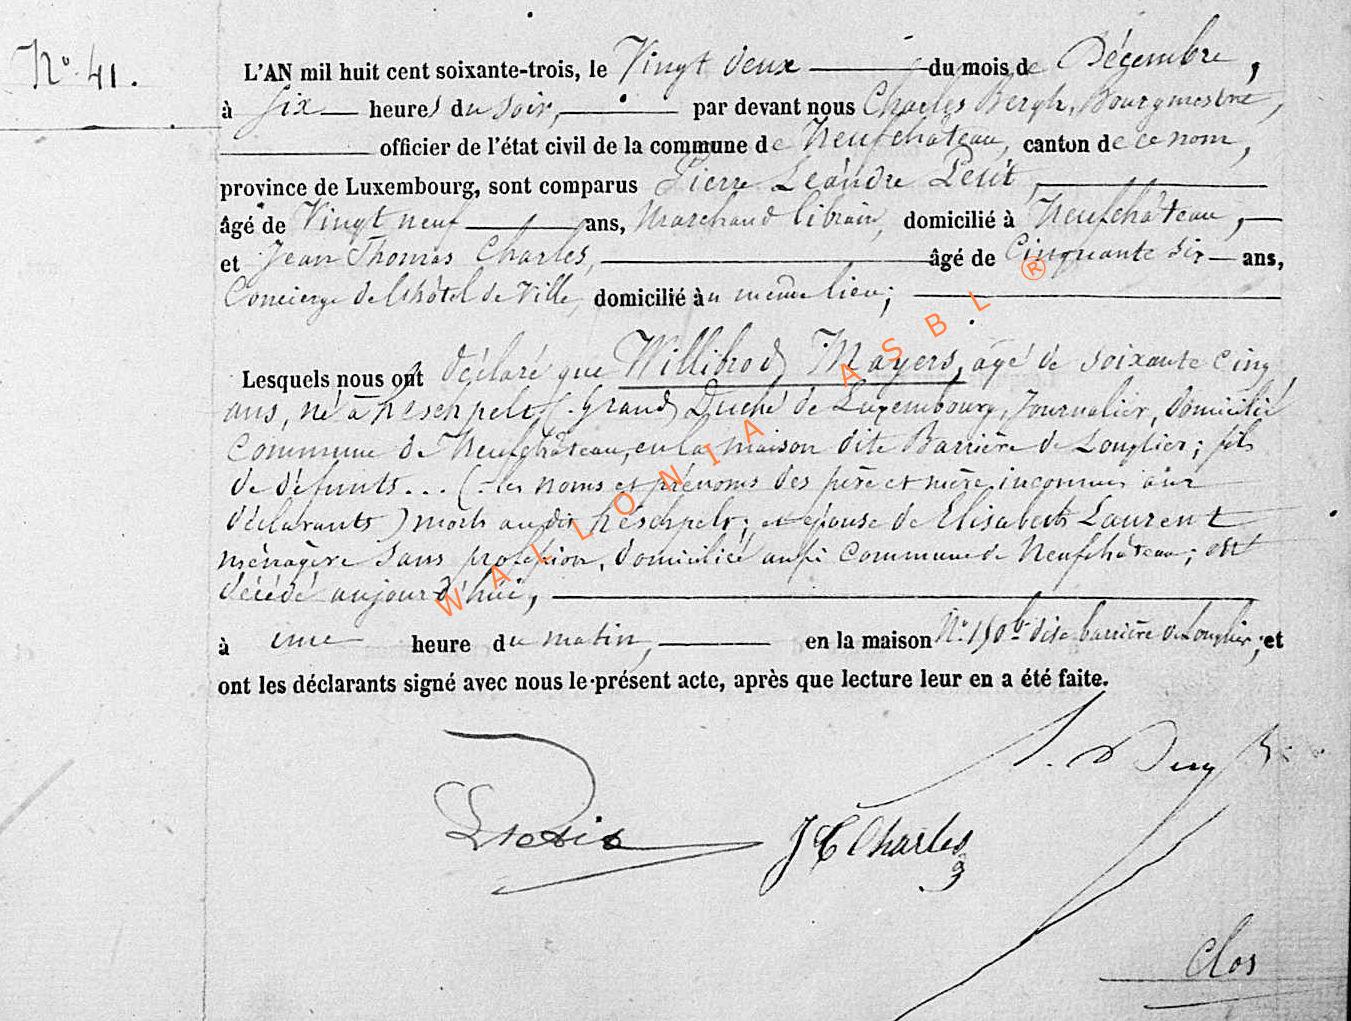 N° 41.
L'AN mil huit cent soixante-trois, le Vingt deux du mois de Décembre,
à six heures du soir, par devant nous Charles Bergh, Bourgmestre,
officier de l'état civil de la commune de Neufchâteau, canton de ce nom,
province de Luxembourg, sont comparus Pierre Léandre Petit,
âgé de Vingt neuf ans, Marchand libraire, domicilié à Neufchâteau,
et Jean Thomas Charles, âgé de Cinquante six ans,
Concierge de l'hôtel de Ville, domicilié au même lieu;
Lesquels nous ont déclaré que Willibrod Mayers, âgé de soixante cinq
ans, né à heschpelt (Grand Duché de Luxembourg, Journalier, domicilié
commune de Neufchâteau, en la maison dite Barrière de Longlier; fils
de défunts... (les noms et prénoms des père et mère inconnus aux
déclarants) morts au dit héschpelt; et époux de Elisabeth Laurent
ménagère sans profession, domiciliée aussi commune de Neufchâteau; est
décédé aujourd'hui,
à une heure du matin, en la maison N° 150b dite barrière de Longlier, et
ont les déclarants signé avec nous le présent acte, après que lecture leur en a été faite.
Petit
JT Charles
Clos
WALLONIA ASBL ®